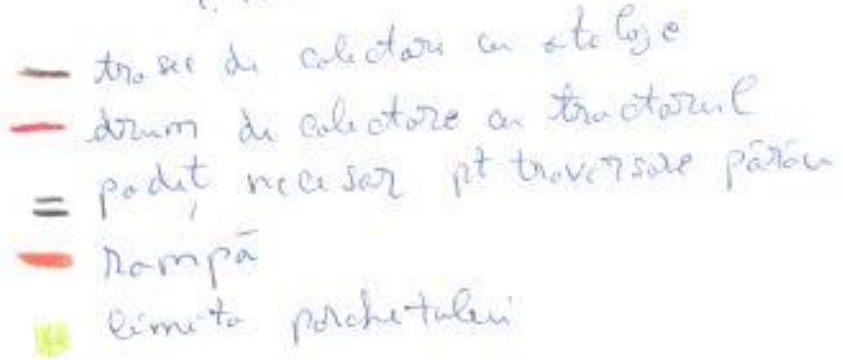 trasee de colectare cu atelaje
drum de colectare cu tractorul
podeț necesar pt traversare pârău
Rampă
limita parchetului